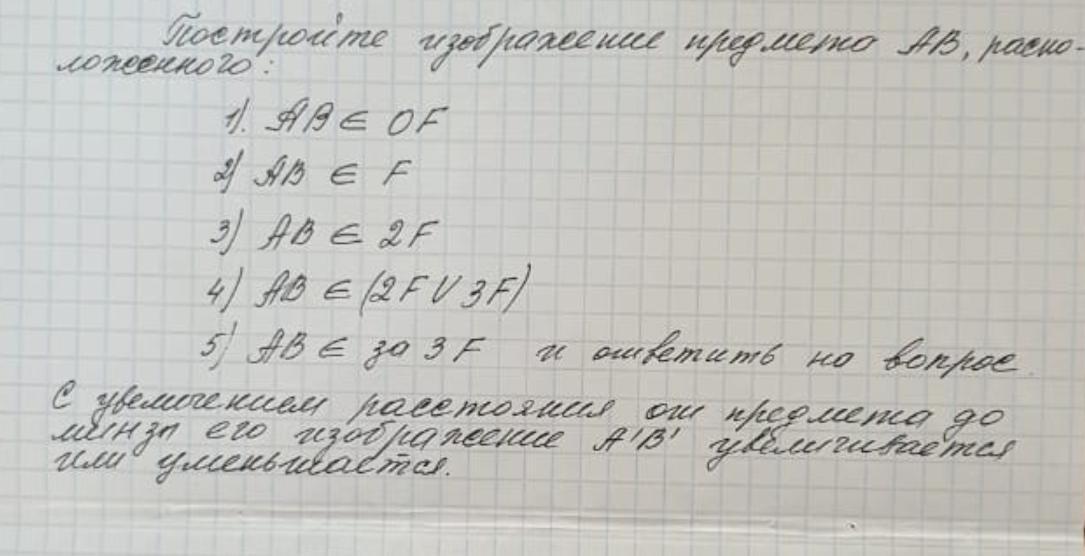 Постройте изображение предмета AB, распо-
ложенного:
1). AB ∈ OF
2) AB ∈ F
3) AB ∈ 2F
4) AB ∈ (2F V 3F)
5) AB ∈ за 3F и ответить на вопрос.
С увеличением расстояния от предмета до
линзы его изображение A'B' увеличивается
или уменьшается.